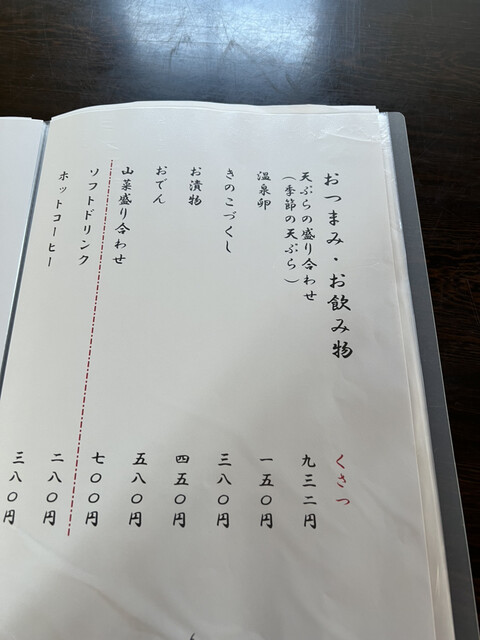 おつまみ・お飲み物
くさつ
天ぷらの盛り合わせ
（季節の天ぷら）
九三二円
温泉卵
一五〇円
きのこづくし
三八〇円
お漬物
四五〇円
おでん
五八〇円
山菜盛り合わせ
七〇〇円
ソフトドリンク
二八〇円
ホットコーヒー
三八〇円